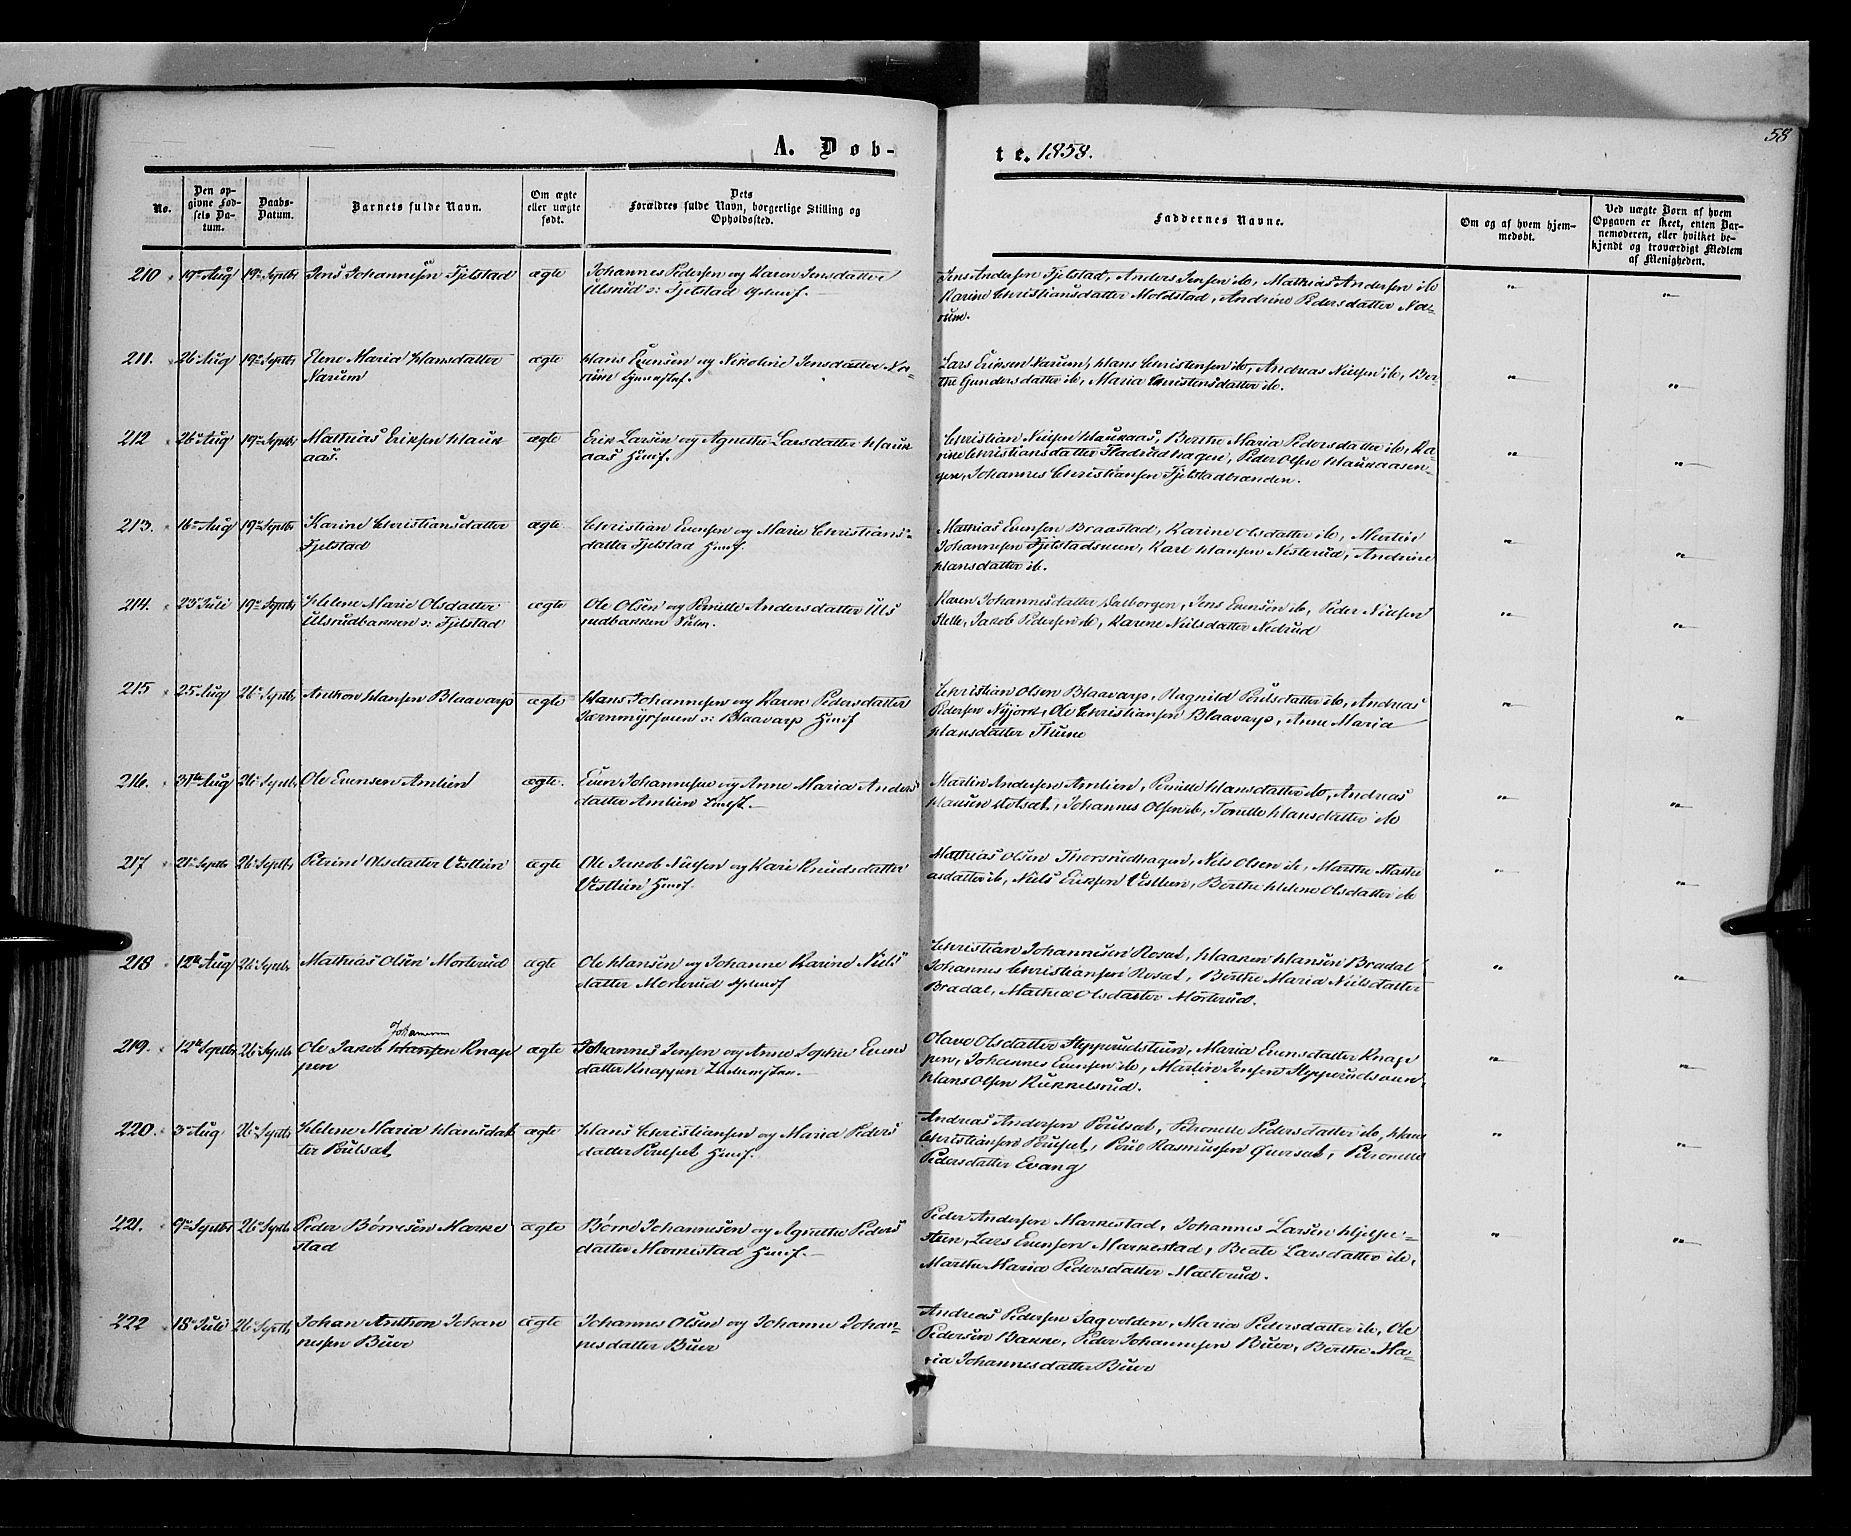 58
A. Døb-
te. 1858.
No.
Den op-
givne Fød-
sels Da-
tum.
Daabs-
Datum.
Barnets fulde Navn.
Om ægte
eller uægte
født.
Dets
Forældres fulde Navn, borgerlige Stilling og
Opholdssted.
Faddernes Navne.
Om og af hvem hjem-
medøbt.
Ved uægte Børn af hvem
Opgaven er skeet, enten Bar-
nemoderen, eller hvilket be-
kjendt og troværdigt Medlem
af Menigheden.
210 19de Aug 19de Septbr Jens Johannesen Fjelstad ægte Johannes Pedersen og Karen Jensdatter
Ulsrud o: Fjelstad
Jens Andersen Fjelstad, Anders Jensen ib, Mathias Andersen ib
Karine Christiansdatter Moldstad, Andrine Pedersdatter Na-
rum.
211. 26 Aug 19de Septbr Elene Maria Hansdatter ægte Hans Evensen og Nikoline Jensdatter Na-
Narum rum
Lars Eriksen Narum, Hans Christensen ib, Andreas Nielsen ib, Ber-
the Gundersdatter ib, Maria Christensdatter ib.
212 26 Aug 19de Septbr Mathias Eriksen Hauk ægte Erik Larsen og Agnethe Larsdatter Hauk
aas. aas Huusf.
Christian Nielsen Haukaas, Berthe Maria Pedersdatter ib, Ka-
rine Christiansdatter Fladrudhagen, Peder Olsen Haukaasen-
gen, Johannes Christiansen Fjelstadbraenden.
213. 16de Aug 19de Septbr Karine Christiansdatter ægte Christian Evensen og Marie Christians-
Fjelstad datter Fjelstad Huusf.
Mathias Evensen Braastad, Karine Olsdatter ib, Martin
Johannesen Fjelstadsveen, Karl Hansen Nesterud, Andrine
Hansdatter ib.
214. 23de Juli 19de Septbr Helene Marie Olsdatter ægte Ole Olsen og Pernille Andersdatter Uls
Ulsrudbakken o: Fjelstad rudbakken
Karen Johannesdatter Dalborgen, Jens Evensen ib, Peder Nielsen
Helle, Jakob Pedersen ib, Karene Nielsdatter Nedrud
215 25 Aug 26 Septbr Anthon Hansen Blaavarp ægte Hans Johannesen og Karen Pedersdatter
Jernmyrhuen o: Blaavarp Huusf
Christian Olsen Blaavarp, Ragnild Poulsdatter ib, Andreas
Pedersen Nyjord, Ole Christiansen Blaavarp, Anne Maria
Hansdatter Thune
216. 31te Aug 26 Septbr Ole Evensen Amlien ægte. Even Johannesen og Anne Maria Anders
datter Amlien Huusf.
Martin Andersen Amlien, Pernille Hansdatter ib, Andreas
Hansen Kolsat, Johannes Olsen ib, Tonille Hansdatter ib
217 21de Septbr 26 Septbr Perine Olsdatter Vestlien ægte Ole Jakob Nielsen og Kari Knudsdatter
Vestlien Huusf.
Mathias Olsen Thorsrudhagen, Nils Olsen ib, Marthe Mathi
asdatter ib, Niels Eriksen Vestlien, Berthe Helene Olsdatter ib
218 12te Aug 26 Septbr Mathias Olsen Morterud ægte Ole Hansen og Johanne Karine Niels
datter Morterud
Christian Johannesen Rosæt, Haaken Hansen Bradal
Johannes Christiansen Rosæt, Berthe Maria Nielsdatter
Bradal, Mathea Olsdatter Morterud.
Johannesen
219. 12te Septbr 26 Septbr Ole Jakob Hansen Knap ægte Johannes Jensen og Anne Sophie Evens
pen datter Knappen
Olave Olsdatter Hepperudstuen, Maria Evensdatter Knap
pen, Johannes Evensen ib, Martin Jensen Hepperudsveen,
Hans Olsen Rukkelsrud.
220. 3de Aug 26 Septbr Helene Maria Hansdat ægte Hans Christiansen og Maria Peders
ter Poulsæt datter Poulsæt Huusf.
Andreas Andersen Poulsæt, Petronelle Pedersdatter ib, Hans
Christiansen Poulsæt, Poul Rasmussen Øversæt, Petronelle
Pedersdatter Evang
221. 9de Septbr 26 Septbr Peder Børresen Marke ægte Børre Johannesen og Agnethe Peders
stad datter Markestad Huusf.
Peder Andersen Markestad, Johannes Larsen Hjelpe-
steen, Lars Evensen Markestad, Beate Larsdatter ib,
Marthe Maria Pedersdatter Malterud.
222 18de Juli 26 Septbr Johan Anthon Johan ægte Johannes Olsen og Johanne Johan-
nesen Buer nesdatter Buer
Andreas Pedersen Sagvolden, Maria Pedersdatter ib, Ole
Pedersen Bakke, Peder Johannesen Buer, Berthe Ma-
ria Johannesdatter Buer